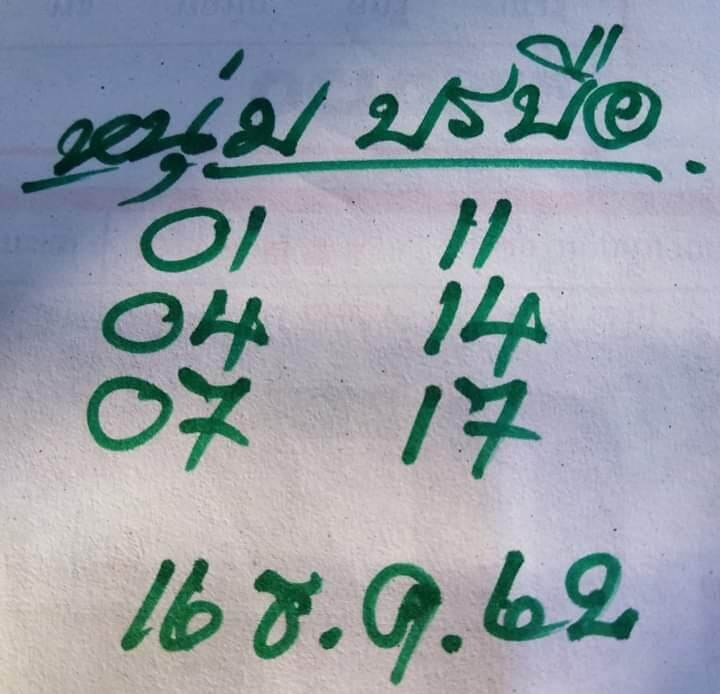 หนุ่ม บรบือ.
01 11
04 14
07 17
16 ธ.ค.62